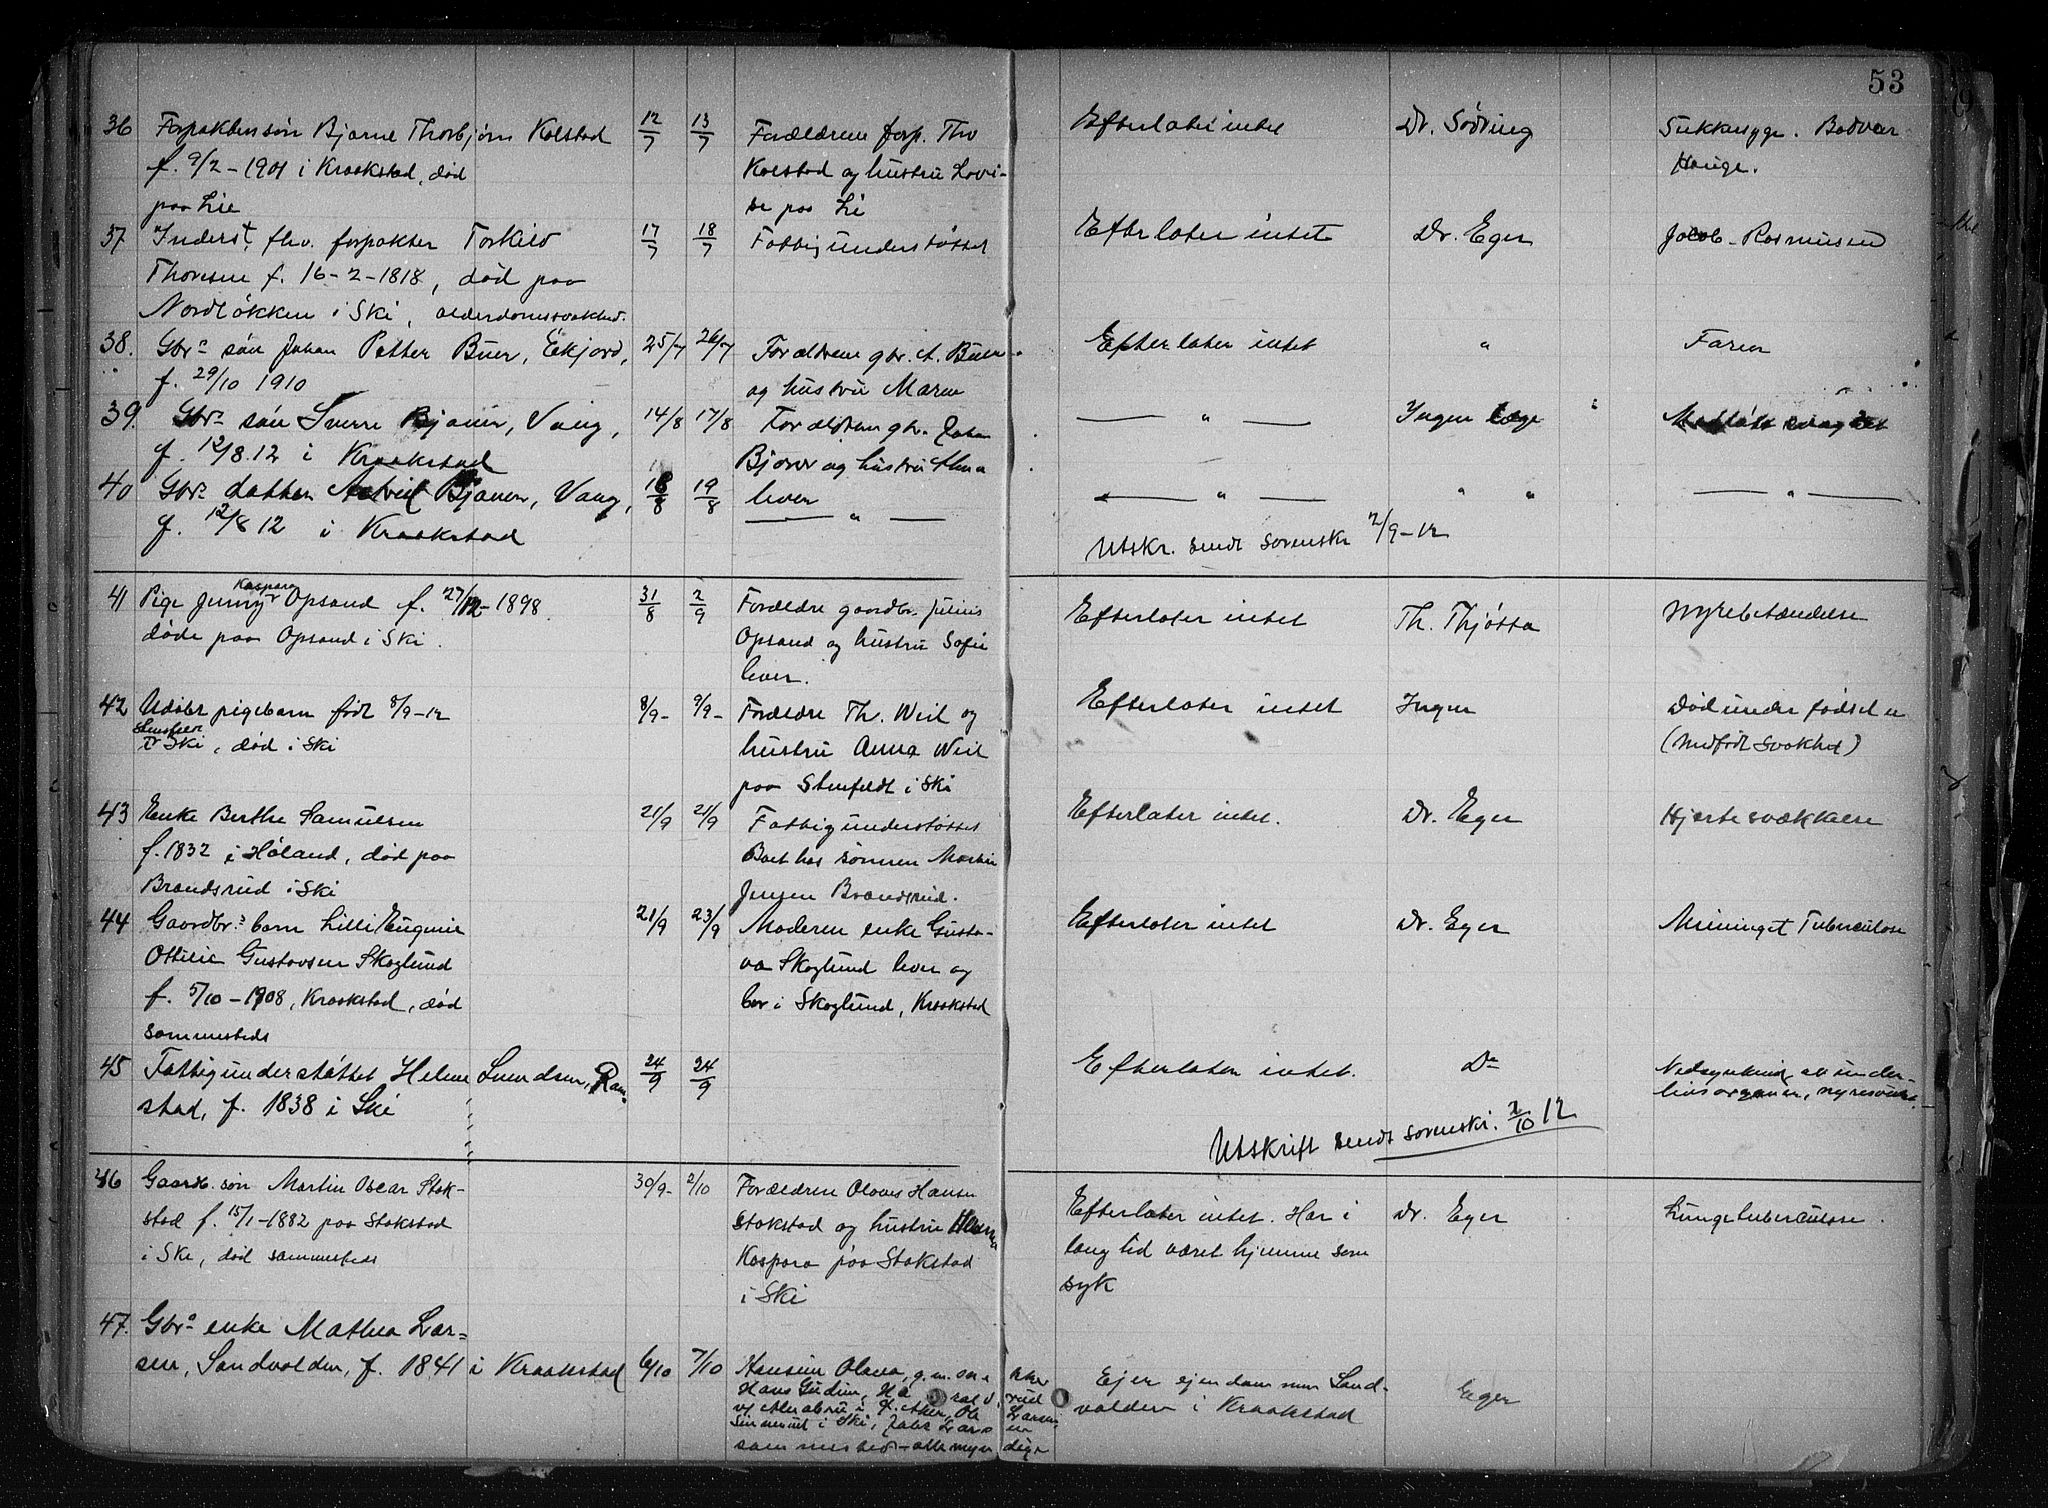 53
36 Forpaktersøn Bjarne Thorbjørn Kolstad 12/7 13/7 Forældrene forp. Tho Efterlater intet Dr. Sødring Sukkersyge.
f. 9/2 - 1901 i Kraakstad, død Kolstad og hustru Lovi- Hauge.
paa Lie se paa Li
37 Inderst, fhv. forpakter Torkild 17/7 18/7 Fattigunderstøttet Efterlater intet Dr. Eger Jacob Rasmussen
Thoresen f. 16-2-1818, død paa
Nordløkken i Ski, alderdomssvakhed.
38. Gbr. søn Johan Petter Buer, Ekjord, 25/7 26/7 Forældrene gbr. A. Buer Efterlater intet " Faren
f. 29/10 1910 og hustru Maren
39. Gbr. søn Sverre Bjaner, Vang, 14/8 17/8 Forældrene gbr. Johan — " — Ingen læge
f. 12/8.12 i Kraakstad og hustru
40 Gbr. datter Astrid Bjaner, Vang, 18/8 19/8 lever — " — " " — " —
f. 12/8 12 i Kraakstad — " —
Utskr. sendt sorenskr 2/9-12
41 Pige Jenny Kaspara Opsand f. 27/12 - 1898. 31/8 2/9 Forældre gaardbr. Julius Efterlater intet Th. Thjøtta Nyrebetændelse
døde paa Opsand i Ski. Opsand og hustru Sofie
lever.
42 Udøbt pigebarn født 8/9-12 8/9- 9/9- Forældre Th. Weil og Efterlater intet Ingen Død under fødselen
Ski, død i Ski hustru Anna Weil (medfødt svakhet)
paa Stenfeldt i Ski
43 Enke Berthe Samuelsen 21/9 21/9 Fattigunderstøttet Efterlater intet. Dr. Eger Hjertesvækkelse
f. 1832 i Høland, død paa Boet hos sønnen Martin
Brandsrud i Ski Jensen Brandsrud.
44 Gaardbr. barn Lilli Eugenie 21/9 23/9 Moderen enke Gusta- Efterlater intet Dr. Eger Meninget Tuberculose
Ottilie Gustavsen Skoglund va Skoglund lever og
f. 5/10 - 1908, Kraakstad, død bor i Skoglund, Kraakstad
sammesteds
45 Fattigunderstøttet Helene Svendsen, Ram- 24/9 24/9 Efterlater intet. Do Nedsynkning av under-
stad, f. 1838 i Ski livsorganer,
Utskrift sendt sorenskr. 2/10 12
46 Gaardb. søn Martin Oscar Stok- 30/9- 2/10 Forældrene Olaves Hansen Efterlater intet. Har i Dr. Eger Lungetuberculose.
stad f. 15/1-1882 paa Stokstad Stokstad og hustru lang tid været hjemme som
i Ski, død sammesteds Kaspara paa Stokstad syk
i Ski
47. Gbr. enke Mathea Lar-
sen, Sandvolden, f. 1841 i Kraakstad 6/10 7/10 Olava, g. m. Ejer ejendommen Sand- Eger
Hans Gudim, volden i Kraakstad
i Ski, Larsen
sammested - alle myndige